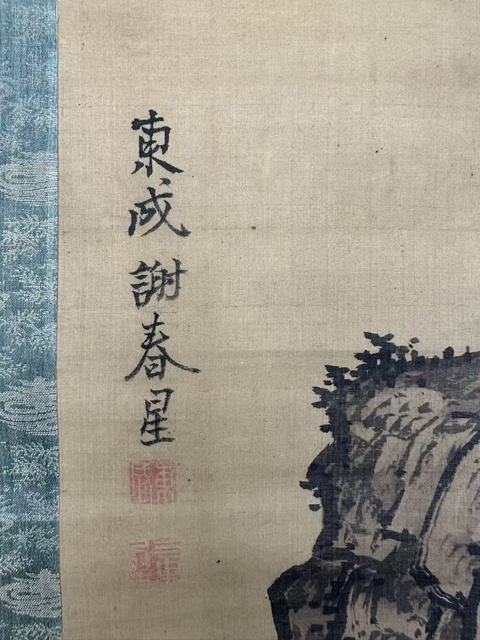 東成謝春星